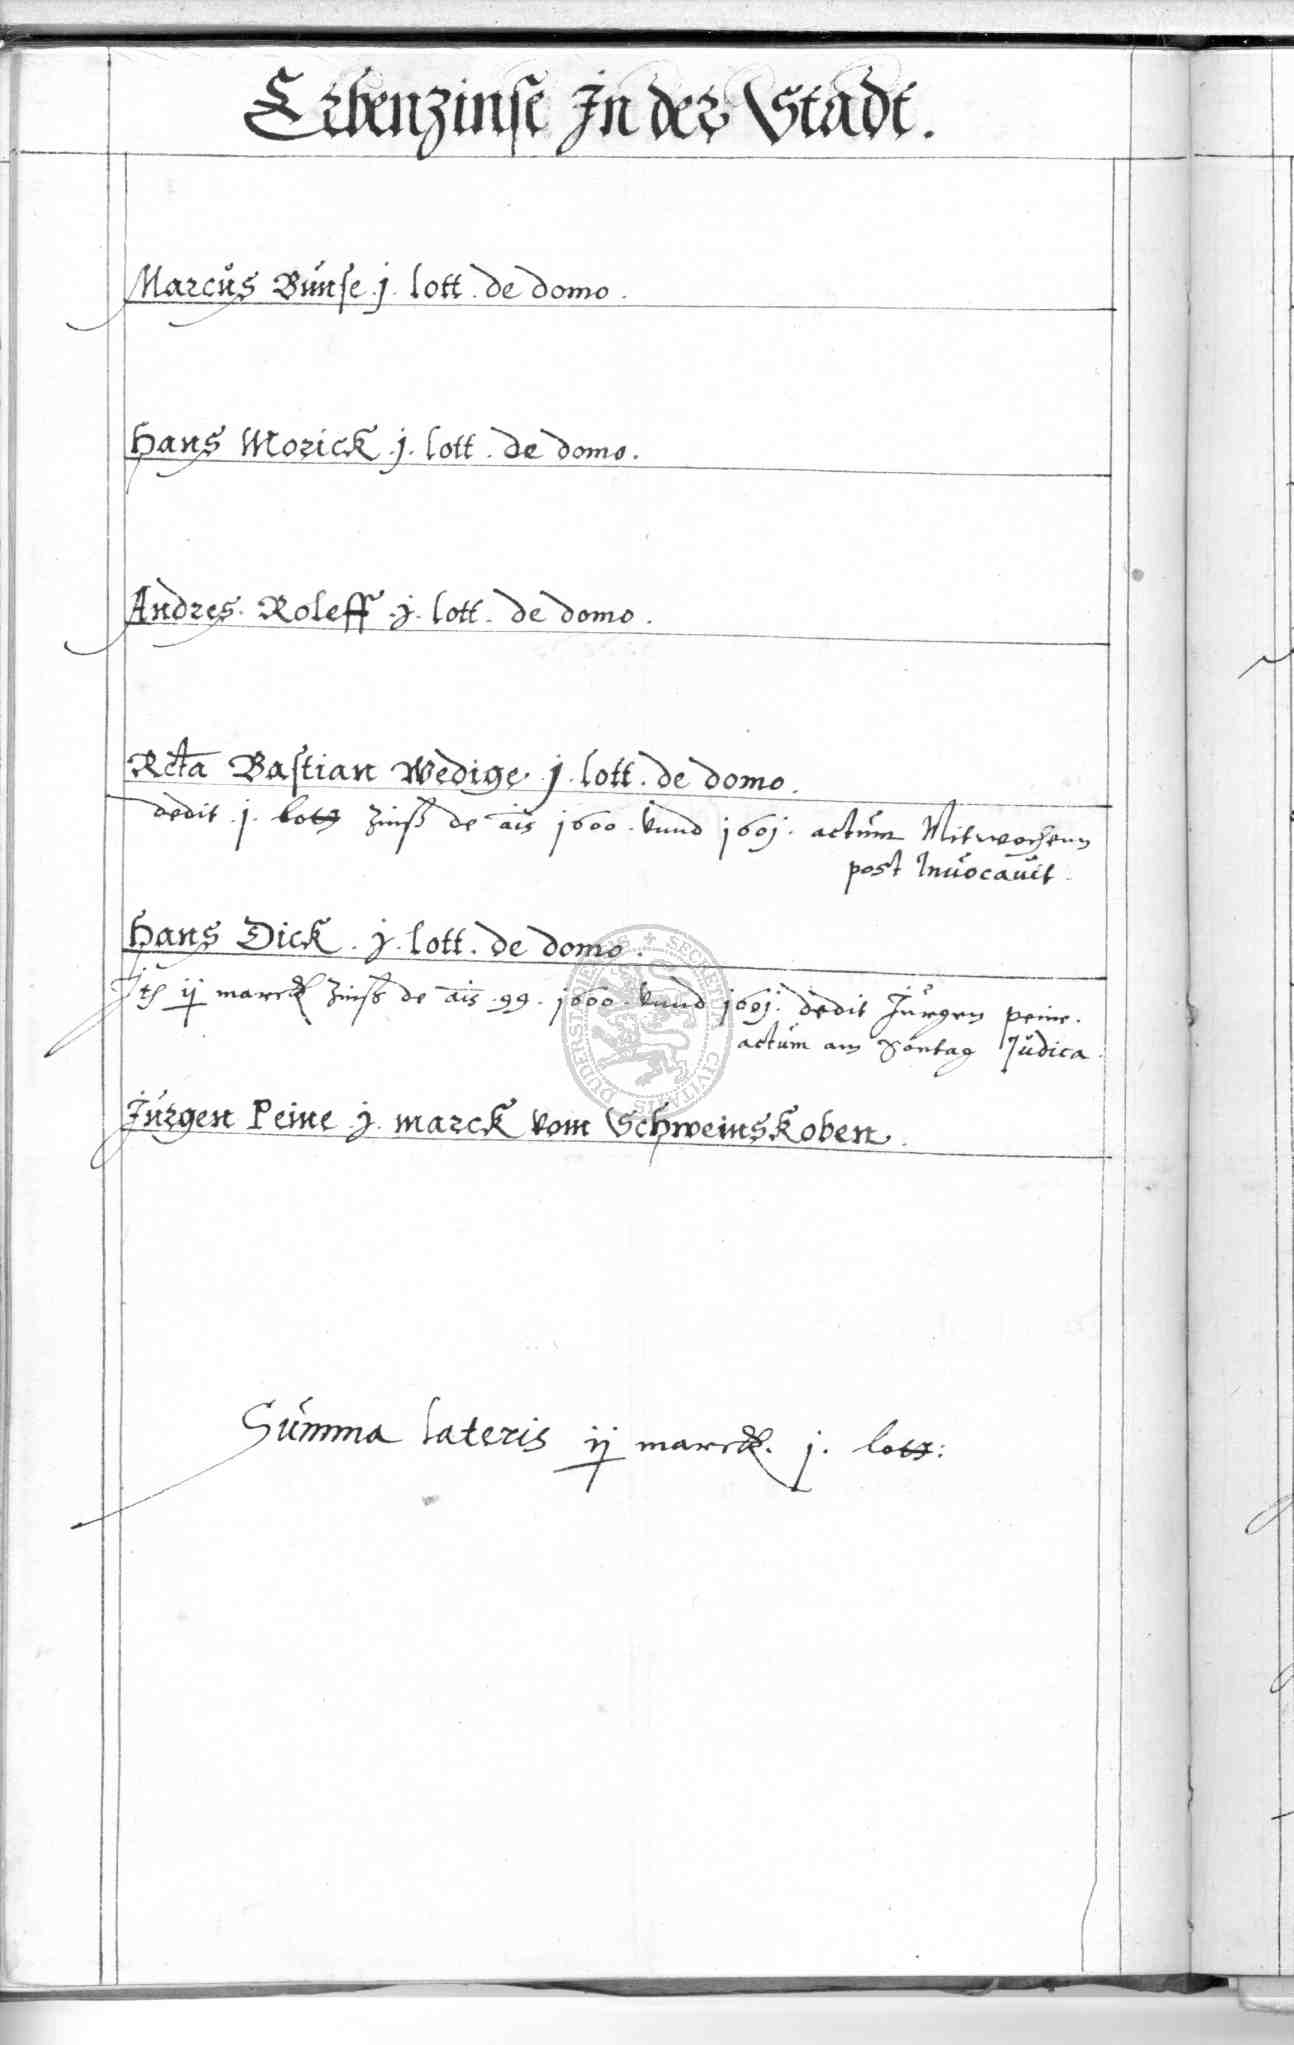 Erbenzinse In der Stadt.
Marcus Bunse .j. lott. de domo.
Hans Morick .j. lott. de domo.
Andres Roleff .j. lott. de domo.
Rcta Bastian Wedige .j. lott. de domo.
dedit .j. lott zinß de ais 1600. vnnd 1601. actum Mitwochenn
post Inuocauit.
Hans Dick .j. lott. de domo.
ij marck zinß de ais .99. 1600. vnnd 1601. dedit Jurgen peine.
actum am Sontag Judica.
Jurgen Peine j. marck vom Schweinskoben.
Summa lateris ij marck. j. lott:
DUDERSTADENSIS SECRETUM CIVITATIS